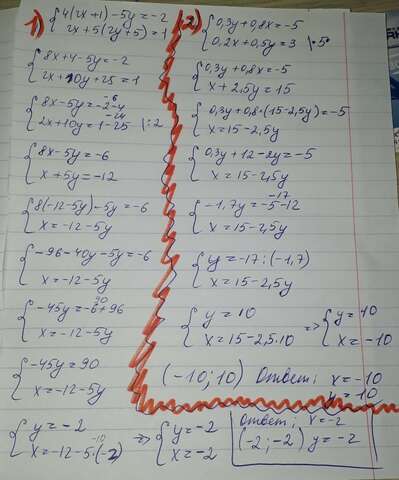 1) { 4(2x+1)-5y=-2
2x+5(2y+5)=1
{ 8x+4-5y=-2
2x+10y+25=1
{ 8x-5y=-2-4 -6
2x+10y=1-25 -24 |:2
{ 8x-5y=-6
x+5y=-12
{ 8(-12-5y)-5y=-6
x=-12-5y
{ -96-40y-5y=-6
x=-12-5y
{ -45y=-6+96 90
x=-12-5y
{ -45y=90
x=-12-5y
{ y=-2
x=-12-5·(-2) -10
=> { y=-2
x=-2
Ответ: x=-2
(-2;-2) y=-2
2) { 0,3y+0,8x=-5
0,2x+0,5y=3 |·5
{ 0,3y+0,8x=-5
x+2,5y=15
{ 0,3y+0,8·(15-2,5y)=-5
x=15-2,5y
{ 0,3y+12-2y=-5
x=15-2,5y
{ -1,7y=-5-12 -17
x=15-2,5y
{ y=-17:(-1,7)
x=15-2,5y
{ y=10
x=15-2,5·10
=> { y=10
x=-10
(-10;10) Ответ: x=-10
y=10